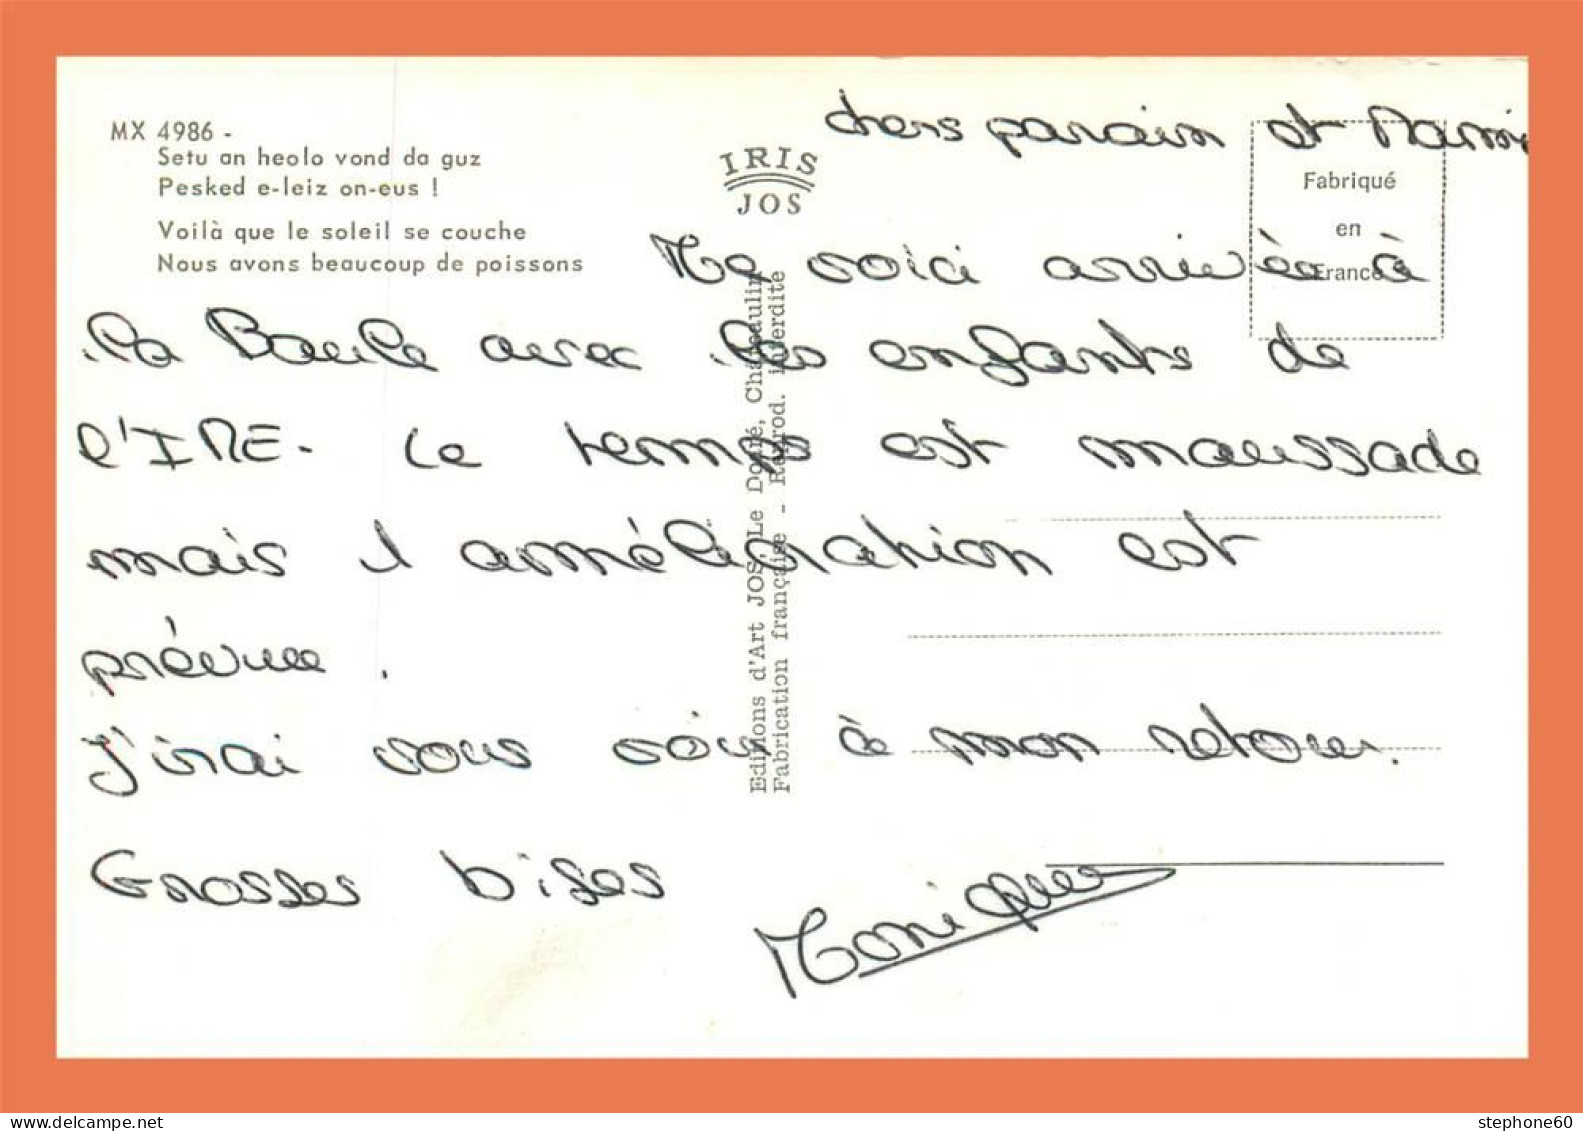 MX 4986 -
Setu an heolo vond da guz
Pesked e-leiz on-eus !
Voilà que le soleil se couche
Nous avons beaucoup de poissons
IRIS
JOS
Fabriqué
en
France
Editions d'Art JOS Le Doaré, Châteaulin
Fabrication française - Reprod. interdite
chers parain et Mamie
Me voici arrivée à
la Baule avec les enfants de
l'IME. Le temps est maussade
mais l'amélioration est
prévue.
J'irai vous voir à mon retour.
Grosses bises
Monique
stephone60